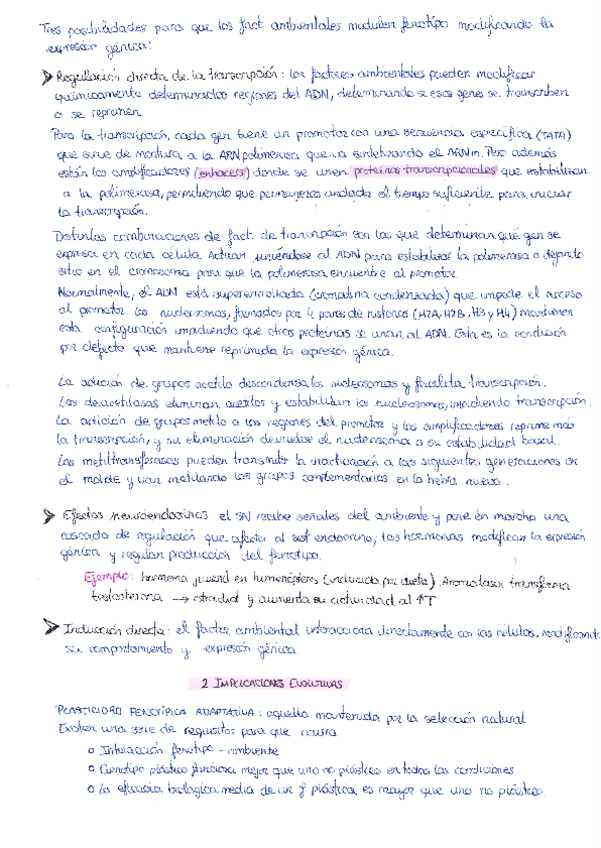 Tres posibilidades para que los fact. ambientales modulen fenotipo modificando la
expresión génica:
➤ Regulación directa de la transcripción: los factores ambientales pueden modificar
químicamente determinadas regiones del ADN, determinando si esos genes se transcriben
o se reprimen
Para la transcripción, cada gen tiene un promotor con una secuencia específica (TATA)
que sirve de montura a la ARN polimerasa que va sintetizando el ARNm. Pero además
están los amplificadores (enhacers) donde se unen proteínas transcripcionales que estabilizan
a la polimerasa, permitiendo que permanezca anclada el tiempo suficiente para iniciar
la transcripción.
Distintas combinaciones de fact. de transcripción son las que determinan qué gen se
expresa en cada célula. Actúan uniéndose al ADN para estabilizar la polimerasa o dejando
sitio en el cromosoma para que la polimerasa encuentre al promotor.
Normalmente, el ADN está superenrollado (cromatina condensada) que impide el acceso
al promotor. Los nucleosomas, formados por 4 pares de histonas (H2A, H2B, H3 y H4) mantienen
esta configuración impidiendo que otras proteínas se unan al ADN. Esta es la condición
por defecto que mantiene reprimida la expresión génica.
La adición de grupos acetilo descondensa los nucleosomas y facilita transcripción.
Las deacetilasas eliminan acetilos y estabilizan los nucleosomas, impidiendo transcripción.
La adición de grupos metilo a las regiones del promotor y los amplificadores reprime más
la transcripción, y su eliminación devuelve el nucleosoma a su estabilidad basal.
Las metiltransferasas pueden transmitir la inactivación a las siguientes generaciones
el molde y van metilando los grupos complementarios en la hebra nueva.
➤ Efectos neuroendocrinos el SN recibe señales del ambiente y pone en marcha una
cascada de regulación que afecta al sist endocrino; las hormonas modifican la expresión
génica y regulan producción del fenotipo.
Ejemplo: hormona juvenil en himenópteros (inducida por dieta). Aromatasa transforma
testosterona → estradiol y aumenta su actividad al ↑T
➤ Inducción directa: el factor ambiental interacciona directamente con las células, modificando
su comportamiento y expresión génica.
2 IMPLICACIONES EVOLUTIVAS
PLASTICIDAD FENOTÍPICA ADAPTATIVA: aquella mantenida por la selección natural
Existen una serie de requisitos para que ocurra
o Interacción fenotipo - ambiente
o Genotipo plástico funciona mejor que uno no plástico en todas las condiciones
o La eficacia biológica media de un plástico es mayor que uno no plástico.